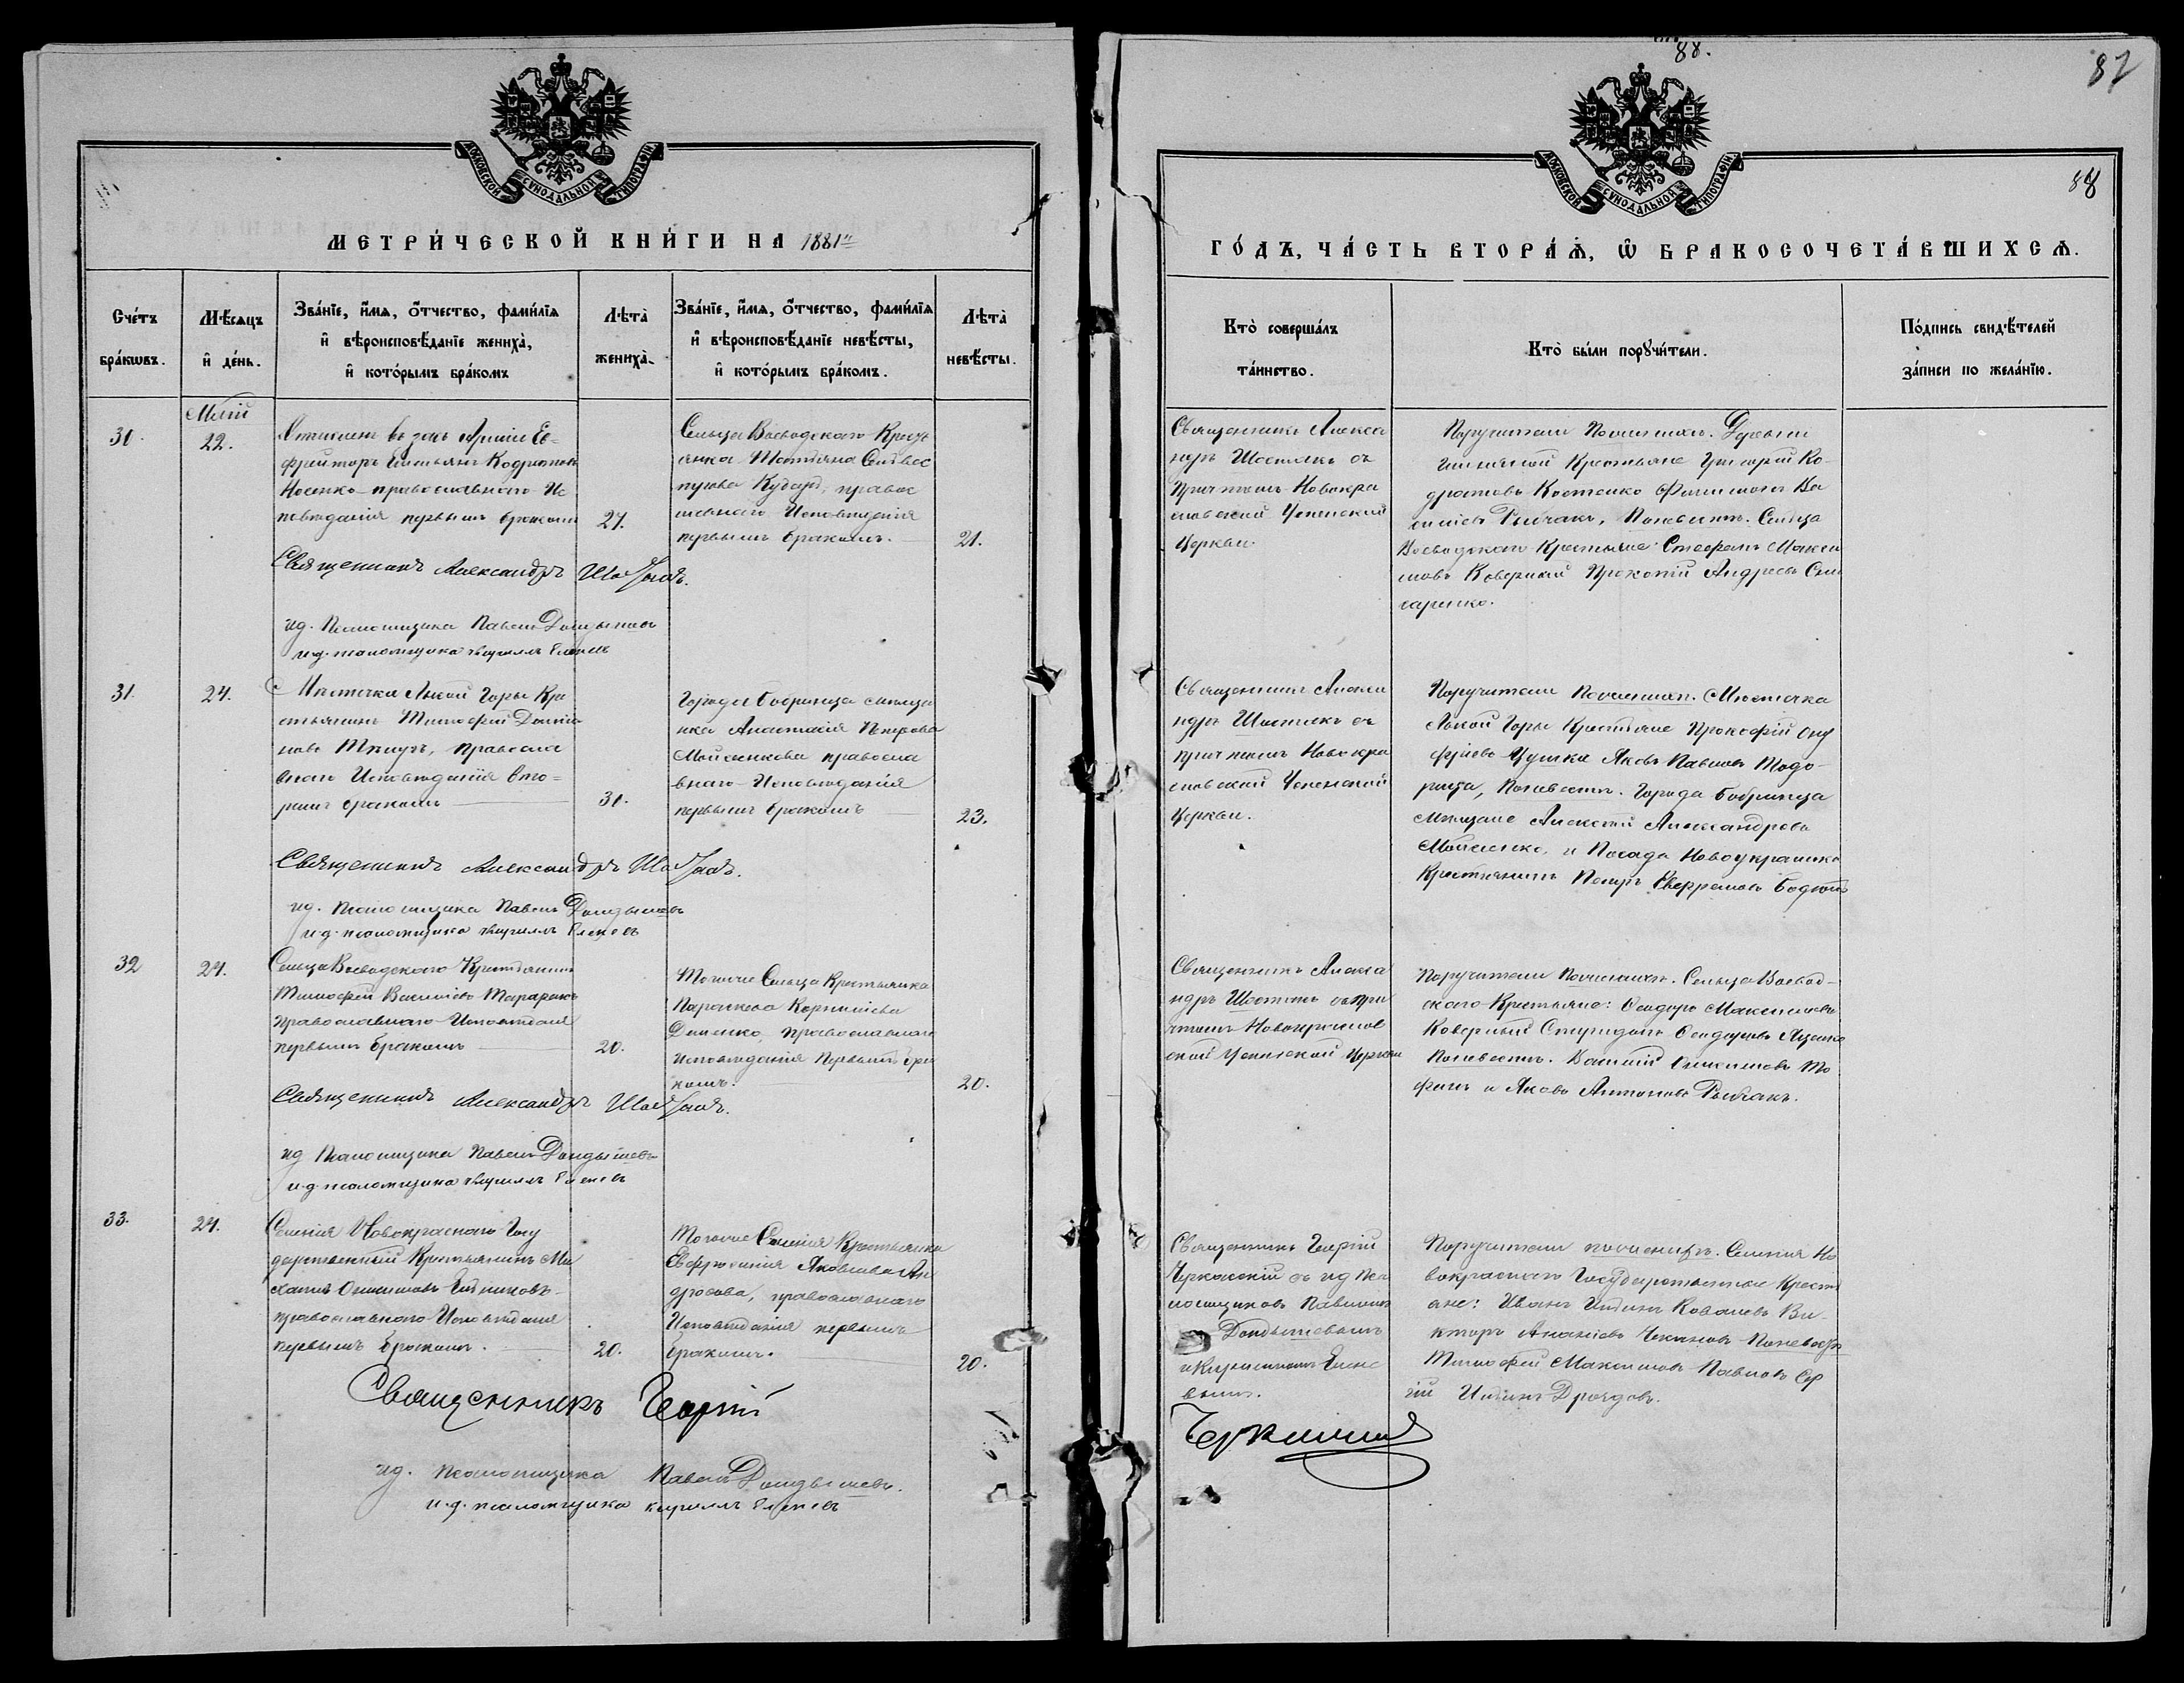 88.
87
88
МОСКОВСКОЙ СѴНОДАЛЬНОЙ ТИПОГРАФІИ
МОСКОВСКОЙ СѴНОДАЛЬНОЙ ТИПОГРАФІИ
МЕТРИ́ЧЕСКОЙ КНИ́ГИ НА 1881й
ГО́ДЪ, ЧА́СТЬ ВТОРА́Ѧ, Ѿ БРАКОСОЧЕТА́ВШИХСѦ.
Сче́тъ
бра́кωвъ.
Мѣ́сѧцъ
и҆ де́нь.
Зва́нїе, и҆́мѧ, о҆́тчество, фами́лїѧ
и҆ вѣроисповѣ́данїе жениха̀,
и҆ кото́рымъ бра́комъ
Лѣта̀
жениха̀.
Зва́нїе, и҆́мѧ, о҆́тчество, фами́лїѧ
и҆ вѣроисповѣ́данїе невѣ́сты,
и҆ кото́рымъ бра́комъ.
Лѣта̀
невѣ́сты.
Кто̀ соверша́лъ
та́инство.
Кто̀ бы́ли порꙋчи́тели.
По́дпись свидѣ́телей
за́писи по жела́нїю.
30.
Маій
22.
Армiи Еф-
фрейторъ Емельянъ Кодратовъ
Носенко православнаго Ис
повѣданія первымъ бракомъ
27.
Сельца Воеводскаго Крест
янка Татіяна Селивес
трова православ
славнаго Исповѣданія
первымъ бракомъ.
21.
Священникъ Алекса
ндръ Шостакъ съ
Причтомъ Новокра
сновской Успенской
Церкви.
Поручители По женихѣ. Деревни
Крестьяне Григорій Ко-
дратовъ Костенко Филимонъ Ва
силіевъ Рыбчакъ, По невѣстѣ. Сельца
Воеводскаго Крестьяне Стефанъ Макси
мовъ Коверный Прокопій Андреевъ Сли
саренко.
Священникъ Александръ Шостакъ.
ид. Псаломщика Павелъ Дондышевъ
и.д. псаломщика Кириллъ Еленевъ
31.
24.
Мѣстечка Лысой Горы Кре
стьянинъ Тимофей
православ
внаго Исповѣданія вто-
рымъ бракомъ
31.
Города Бобринца мѣща
нка Анастасія Петрова
Мойсеенкова православ
внаго Исповѣданія
первымъ бракомъ
23.
Священникъ Алекса
ндръ Шостакъ съ
причтомъ Новокра
сновской Успенской
Церкви.
Поручители По женихѣ. Мѣстечка
Лысой Горы Крестьяне Прокофій Ону
фріевъ Цушка Яковъ Павловъ Тодо-
рица, По невѣстѣ. Города Бобринца
мѣщане Алексѣй Александровъ
Мойсеенко, и Посада Новоукраинка
Крестьянинъ Петръ
Священникъ Александръ Шостакъ.
ид. Псаломщика Павелъ Дондышевъ
и.д. псаломщика Кириллъ Еленевъ
32
24.
Сельца Воеводскаго Крестьянинъ
Тимофей Васильевъ Тарарако
православнаго Исповѣданія
первымъ бракомъ
20.
Тогоже Сельца Крестьянка
Параскева Корниліева
православнаго
исповѣданія Первымъ бра
комъ.
20.
Священникъ Алекса
ндръ Шостакъ съ при
чтомъ Новокраснов
ской Успенской Церкви
Поручители По женихѣ. Сельца Воевод-
скаго Крестьяне: Феодоръ Максимовъ
Коверный Спиридонъ Феодоровъ Яценко
По невѣстѣ. Василій То
финъ и Яковъ Антоновъ Рыбчакъ.
Священникъ Александръ Шостакъ.
ид Псаломщика Павелъ Дондышевъ
и.д. псаломщика Кириллъ Еленевъ
33.
24.
Селенія Новокраснаго Госу
дарственный Крестьянинъ Ми
хаилъ
православнаго Исповѣданія
первымъ бракомъ.
20.
Тогоже Селенія Крестьянка
Евфросинія Яковлева Ан
дросова, православнаго
Исповѣданія первымъ
бракомъ.
20.
Священникъ Георгій
Черкасскій съ ид Пса
ломщиковъ Павломъ
Дондышевымъ
и Кирилломъ Елене
вымъ.
Поручители по женихѣ. Селенія Но
вокраснаго Государственные Крест
яне: Иванъ Ильинъ Ковалевъ Ви-
кторъ Ананіевъ Чекановъ По невѣстѣ
Тимофей Максимовъ Павловъ Сер
гій Ильинъ Дроздовъ.
Священникъ Георгій Черкасскій
ид. Псаломщика Павелъ Дондышевъ.
и.д. псаломщика Кириллъ Еленевъ